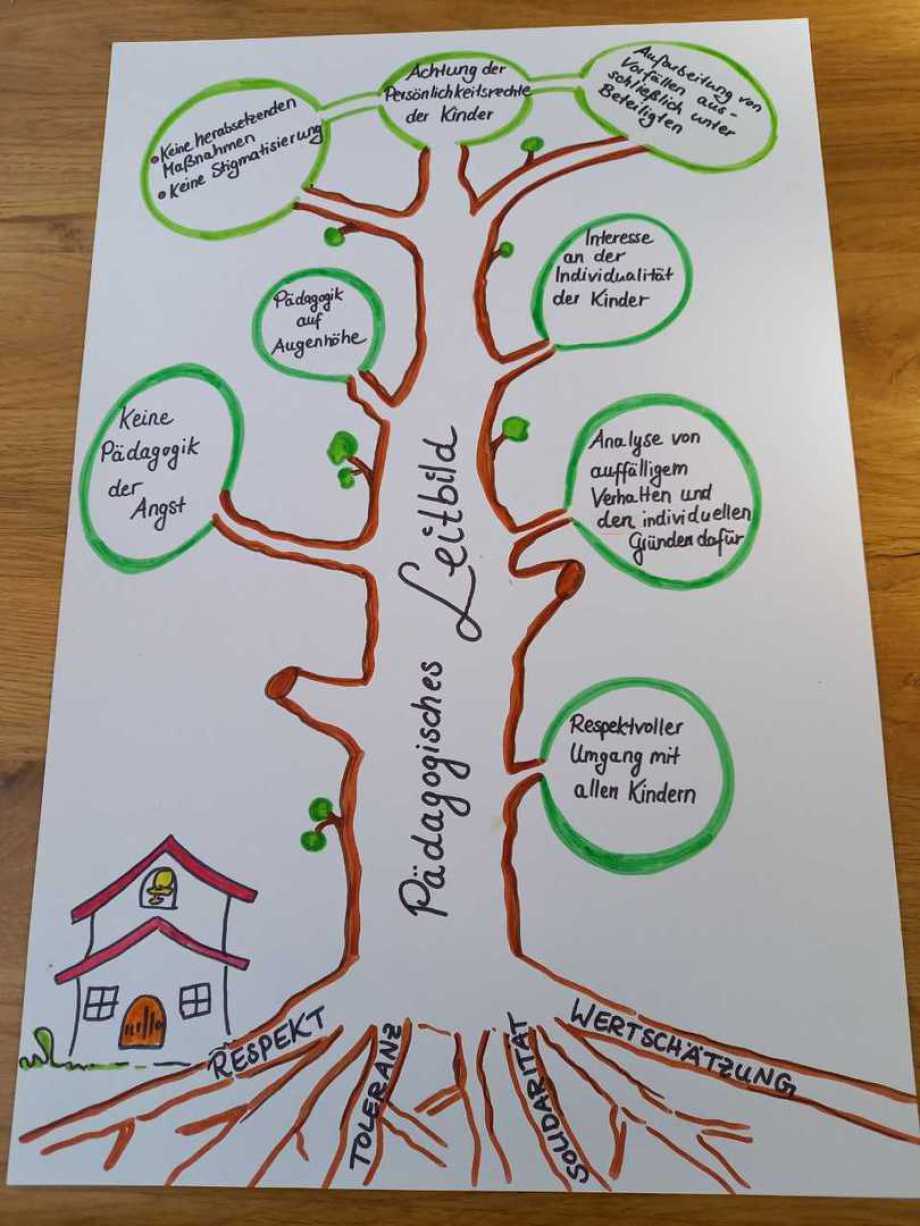 • Keine herabsetzenden
Maßnahmen
• Keine Stigmatisierung
Achtung der
Persönlichkeitsrechte
der Kinder
Aufarbeitung von
Vorfällen aus-
schließlich unter
Beteiligten
Pädagogik
auf
Augenhöhe
Interesse
an der
Individualität
der Kinder
Keine
Pädagogik
der
Angst
Analyse von
auffälligem
Verhalten und
den individuellen
Gründen dafür
Respektvoller
Umgang mit
allen Kindern
Pädagogisches Leitbild
RESPEKT
TOLERANZ
SOLIDARITÄT
WERTSCHÄTZUNG